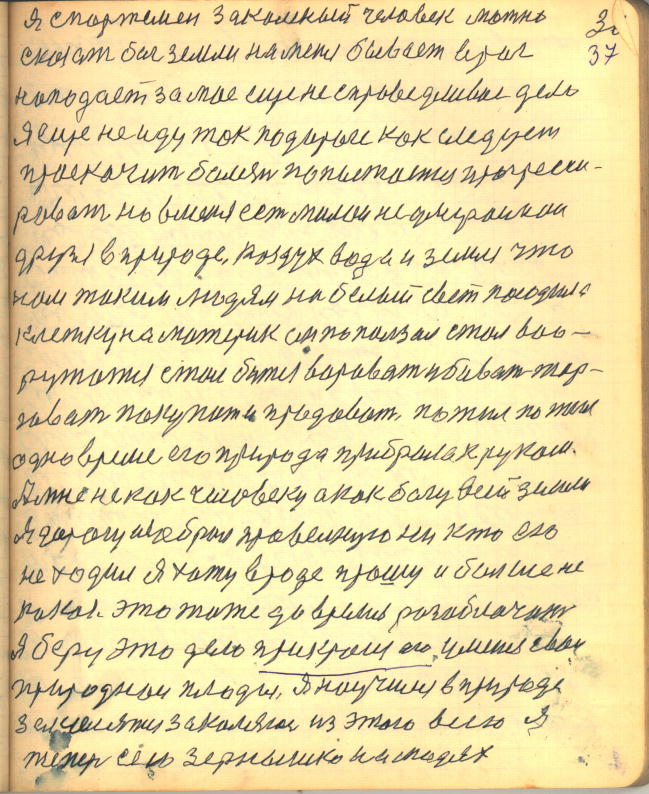 Я спортсмен закалный человекможно 37
сказат бог земли на меня бывает враг
нападает за мае еще не справедливае дело
я еще не иду ток подороге как следует
проскочит болезн попытаюся прогресси-
роват но вменя ест милаи неумираюшчаи
друзя в природе, воздух вода и земля что
нам таким людям на белый свет породила
клетку на материк он поползал стал воо-
ружатся стал битя вароват убиват тор-
говат покупат и продоват, пожил пожил
одно время его природа прибрала к рукам.
А мне не как человеку а как богу всей земли
Я дорогу избрал правелную ни кто ею
не ходил я хожу вроде прошу и болше не
какой. это тоже до время разоблачат
Я беру это дело прикрою его, уменя сваи
природнаи плоды, Я научился в природе
закалятся из этого всего я
тепер сею зернышко на людях